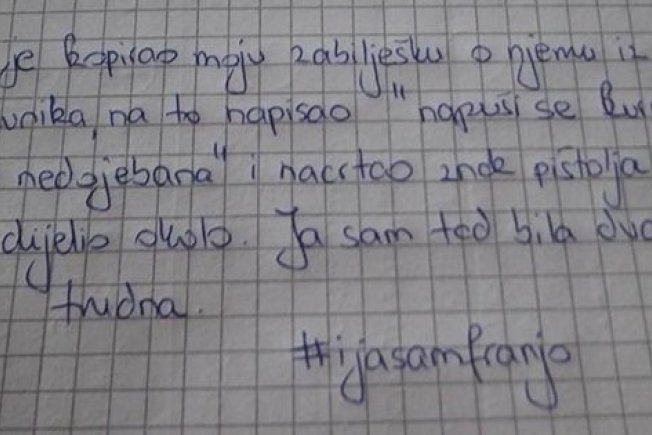 je kopirao moju zabilješku o njemu iz
na to napisao "napuši se
nedojebana" i nacrtao znak pištolja
dijelio okolo. Ja sam tad bila
trudna.
#ijasamfranjo